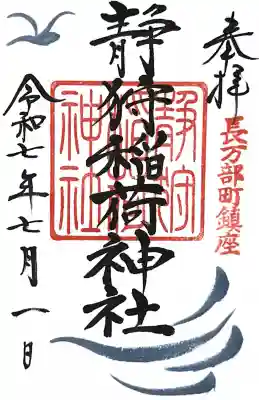 奉拝
長万部町鎮座
静狩稲荷神社
静狩
稲荷
神社
令和七年七月一日